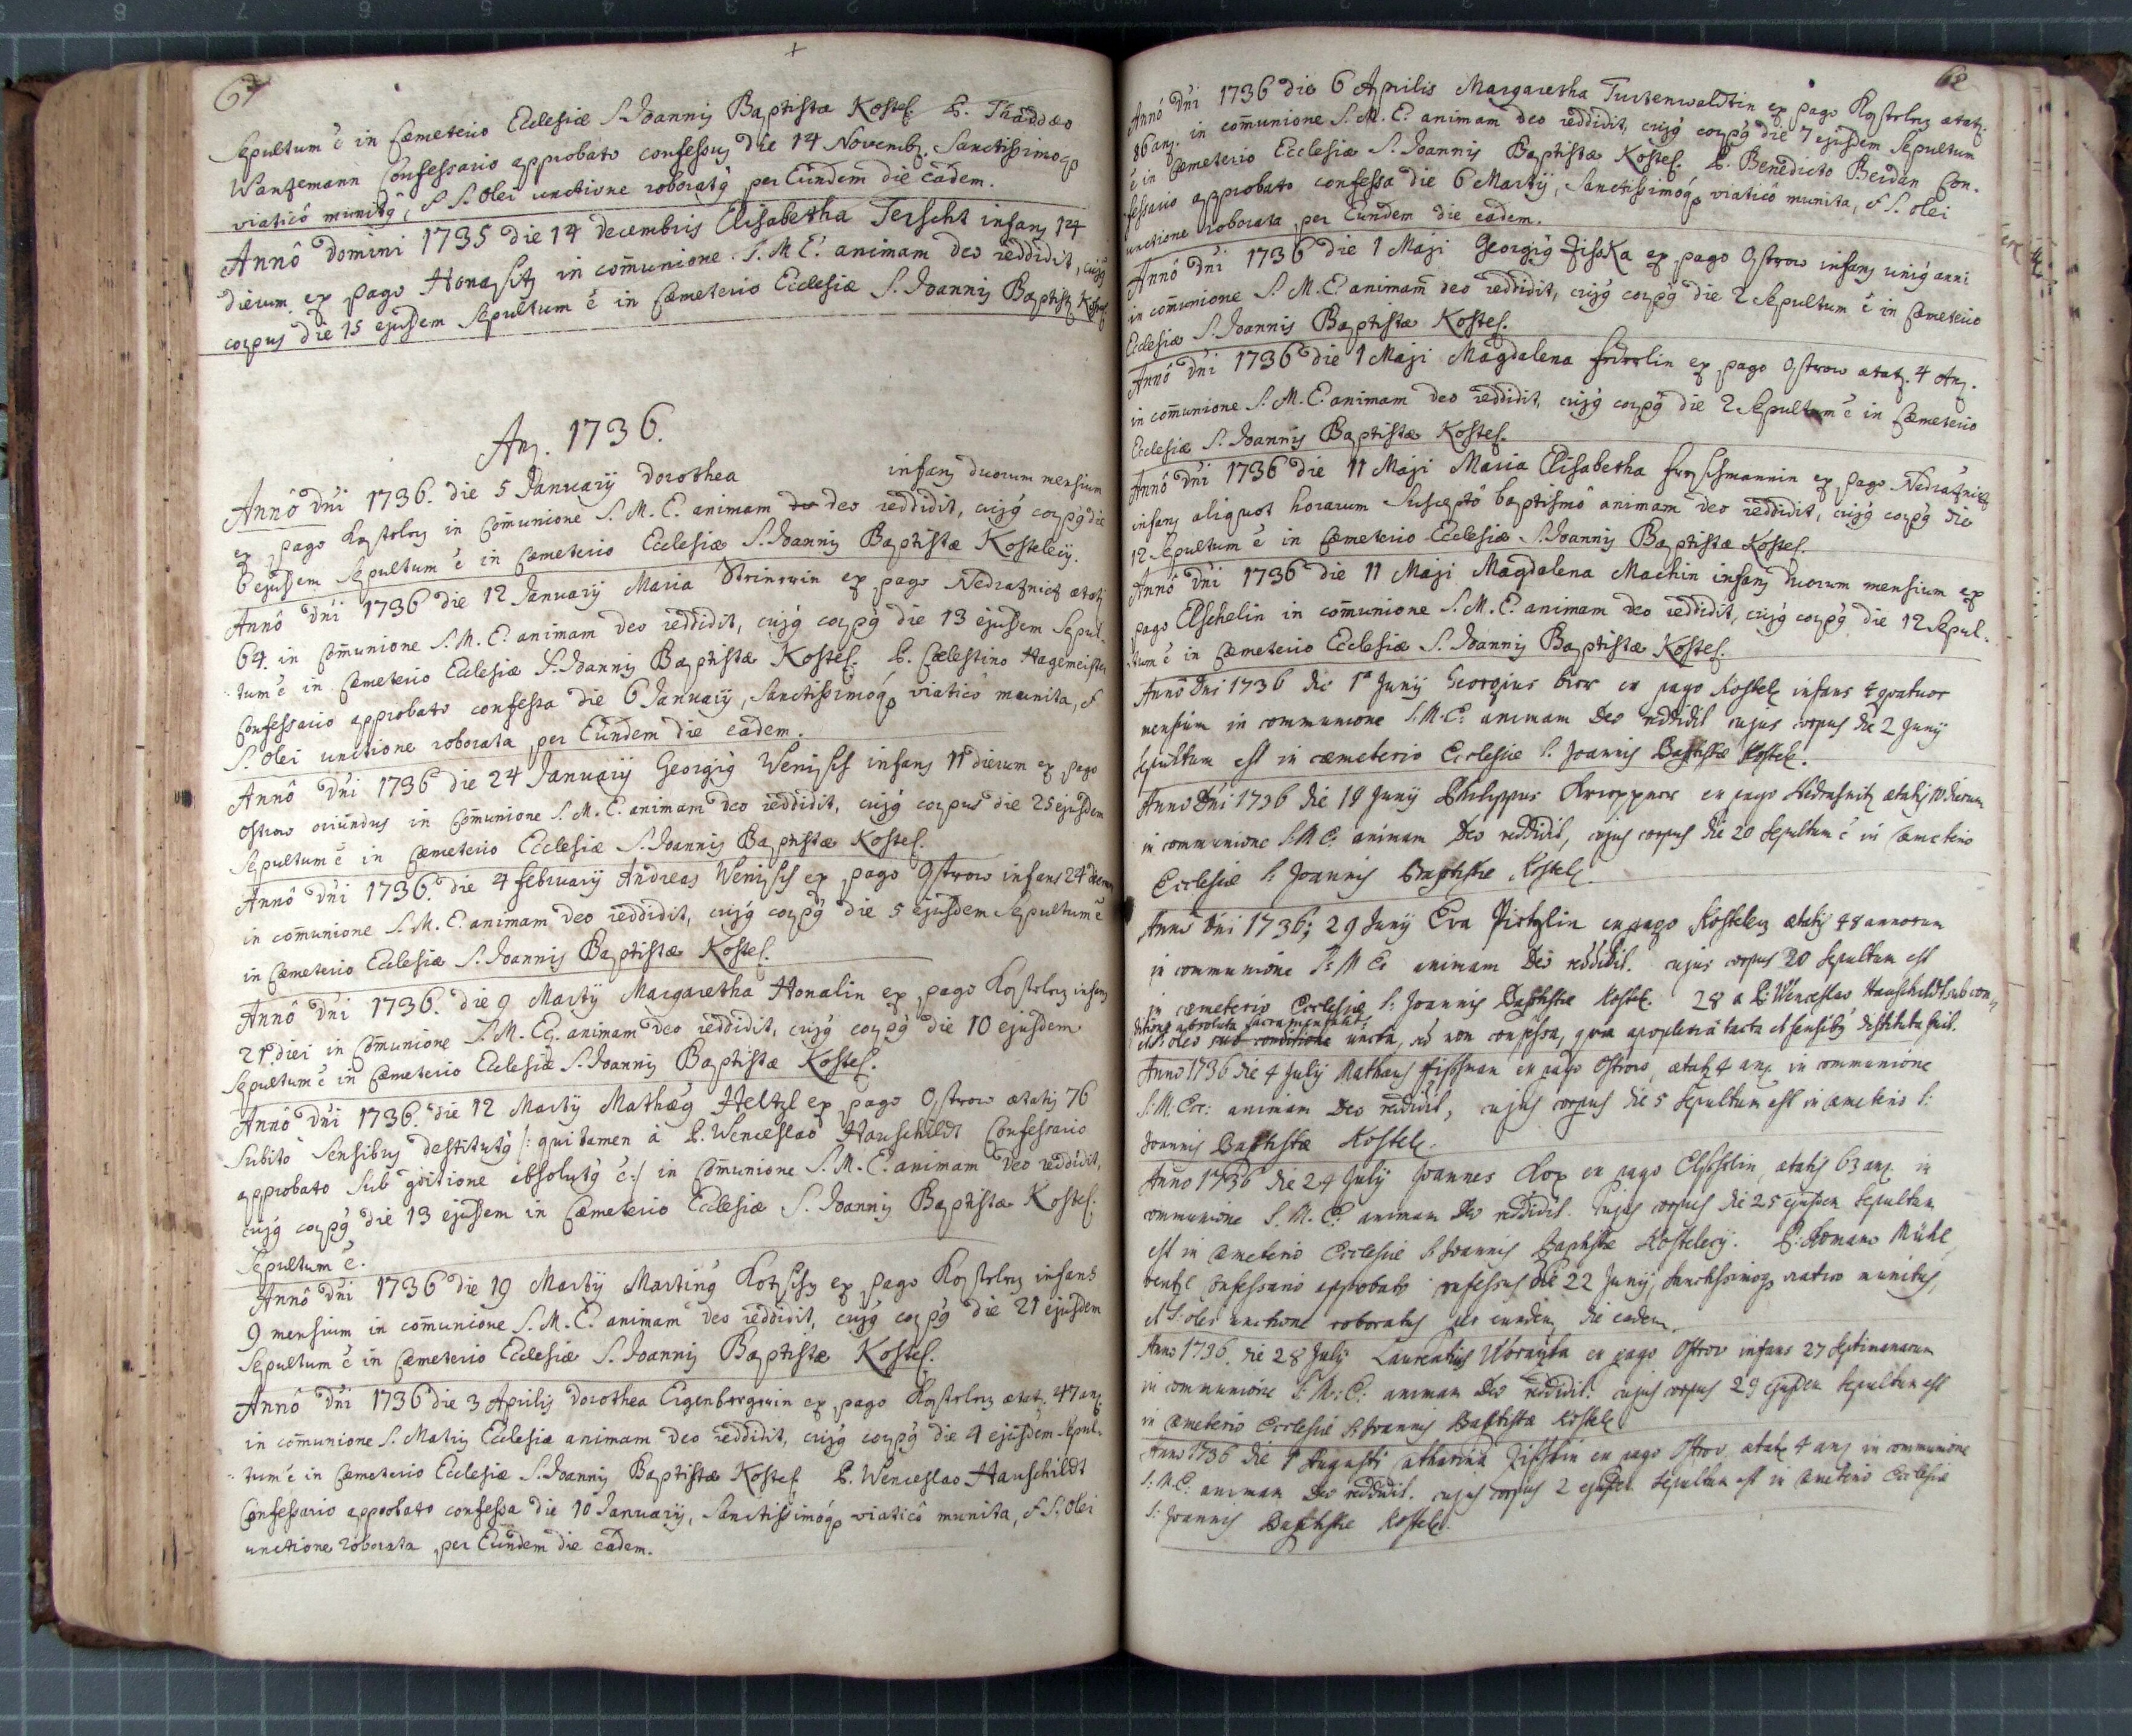 67
Sepultum ē in Cæmeterio Ecclesiæ S. Joannis Baptistæ Kostel. P. Thaddæo
Wantzemann Confessario approbato confessus die 14 Novembr. Sanctissimoqȝ
viaticô munitg, & S. Olei unctione roboratg per Eundem die eadem.
Annô Domini 1735 die 14 decembris Elisabetha Terscht infans 14
dierum ex pago Honasitz in com̄unione S. M. E. animam deo reddidit, cujg
corpus die 15 ejusdem Sepultum ē in Cæmeterio Ecclesiæ S. Joannis Baptistæ Kostel.
An. 1736.
Annô Dn̄i 1736. die 5 Januarij Dorothea infans duorum mensium
ex pago Kosteletz in Com̄unione S. M. E. animam deo reddidit, cujg corpg die
6 ejusdem Sepultum ē in Cæmeterio Ecclesiæ S. Joannis Baptistæ Kostelecij.
Annô Dn̄i 1736 die 12 Januarij Maria ex pago Nedraznitz ætatis
64 in Com̄unione S. M. E. animam deo reddidit, cujg corpg die 13 ejusdem Sepul-
tum ē in Cæmeterio Ecclesiæ S. Joannis Baptistæ Kostel. P. Cælestino Hagemeister
Confessario approbato confessa die 6 Januarij, Sanctissimoqȝ viaticô munita, &
S. Olei unctione roborata per Eundem die eadem.
Annô Dn̄i 1736 die 24 Januarij Georgig Wenisch infans 11 dierum ex pago
Ostrow oriundus in Com̄unione S. M. E. animam deo reddidit, cujg corpus die 25 ejusdem
Sepultum ē in Cæmeterio Ecclesiæ S. Joannis Baptistæ Kostel.
Annô Dn̄i 1736. die 4 februarij Andreas Wenisch ex pago Ostrow infans 24 dierum
in com̄unione S. M. E. animam deo reddidit, cujg corpg die 5 ejusdem Sepultum ē
in Cæmeterio Ecclesiæ S. Joannis Baptistæ Kostel.
Annô Dn̄i 1736. die 9 Martij Margaretha Honalin ex pago Kosteletz infans
21 diei in Com̄unione S. M. Ec. animam deo reddidit, cujg corpg die 10 ejusdem
Sepultum ē in Cæmeterio Ecclesiæ S. Joannis Baptistæ Kostel.
Annô Dn̄i 1736. die 12 Martij Mathæg Heltzl ex pago Ostrow ætatis 76
Subito Sensibus destitutg |: qui tamen à P. Wenceslao Hauschildt Confessario
approbato Sub ꝯditione absolutg ē :| in Com̄unione S. M. E. animam deo reddidit,
cujg corpg die 13 ejusdem in Cæmeterio Ecclesiæ S. Joannis Baptistæ Kostel.
Sepultum ē.
Annô Dn̄i 1736 die 19 Martij Marting ex pago Kosteletz infans
9 mensium in com̄unione S. M. E. animam deo reddidit, cujg corpg die 21 ejusdem
Sepultum ē in Cæmeterio Ecclesiæ S. Joannis Baptistæ Kostel.
Annô Dn̄i 1736 die 3 Aprilis Dorothea Eigenbergerin ex pago Kosteletz ætat. 47 an.
in com̄unione S. Matris Ecclesiæ animam deo reddidit, cujg corpg die 4 ejusdem Sepul-
tum ē in Cæmeterio Ecclesiæ S. Joannis Baptistæ Kostel. P. Wenceslao Hauschildt
Confessario approbato confessa die 10 Januarij, Sanctissimoqȝ viaticô munita, & S. Olei
unctione roborata per Eundem die eadem.
68
Annô Dn̄i 1736 die 6 Aprilis Margaretha Turtenwaldtin ex pago Kosteletz ætat.
86 an. in com̄unione S. M. E. animam deo reddidit, cujg corpg die 7 ejusdem Sepultum
ē in Cæmeterio Ecclesiæ S. Joannis Baptistæ Kostel. P. Benedicto Berdan Con-
fessario approbato confessa die 6 Martij, Sanctissimoqȝ viaticô munita, & S. Olei
unctione roborata per Eundem die eadem.
Annô Dn̄i 1736 die 1 Maji Georgig Zisska ex pago Ostrow infans unig anni
in com̄unione S. M. E. animam deo reddidit, cujg corpg die 2 Sepultum ē in Cæmeterio
Ecclesiæ S. Joannis Baptistæ Kostel.
Annô Dn̄i 1736 die 1 Maji Magdalena ex pago Ostrow ætat. 4 An.
in com̄unione S. M. E. animam deo reddidit, cujg corpg die 2 Sepultum ē in Cæmeterio
Ecclesiæ S. Joannis Baptistæ Kostel.
Annô Dn̄i 1736 die 11 Maji Maria Elisabetha ex pago Nedraznitz
infans aliquot horarum Susceptô baptismô animam deo reddidit, cujg corpg die
12 Sepultum ē in Cæmeterio Ecclesiæ S. Joannis Baptistæ Kostel.
Annô Dn̄i 1736 die 11 Maji Magdalena Machin infans duorum mensium ex
pago Elschelin in com̄unione S. M. E. animam deo reddidit, cujg corpg die 12 Sepul-
tum ē in Cæmeterio Ecclesiæ S. Joannis Baptistæ Kostel.
Anno Dni 1736 die 1ª Junij Georgius ex pago Kostelz infans 4 quatuor
mensium in communione S. M. E. animam Deo reddidit cujus corpus die 2 Junij
sepultum est in cæmeterio Ecclesiæ S. Joannis Baptistæ Kostel.
Anno Dni 1736 die 19 Junij Philippus ex pago Nedrasnitz ætatis 10 dierum
in communione S. M. E. animam Deo reddidit, cujus corpus die 20 Sepultum ē in Cæmeterio
Ecclesiæ S. Joannis Baptistæ Kostel.
Anno Dni 1736; 29 Junij Eva ex pago Kosteletz ætatis 48 annorum
in communione S. M E. animam Deo reddidit. cujus corpus 20 Sepultum est
in cæmeterio Ecclesiæ S. Joannis Baptistæ Kostel. 28 a P. Wenceslao Hauschildt sub con-
ditione absoluta sacramentalit.
et S. oleo sub conditione uncta, sed non confessa, quia apoplexiâ tacta et sensibg destituta fuit.
Anno 1736 die 4 Julij Mathæus Fissman ex pago Ostrow, ætat. 4 an. in communione
S. M. Ecc: animam Deo reddidit, cujus corpus die 5 Sepultum est in Cæmeterio S.
Joannis Baptistæ Kostel.
Anno 1736 die 24 Julij Joannes ex pago Elschelin, ætatis 63 an. in
communione S. M. E. animam Deo reddidit. Cujus corpus die 25 ejusdem Sepultum
est in Cæmeterio Ecclesiæ S. Joannis Baptistæ Kostelecij. P. Romano Mühl
Confessario approbato confessus die 22 Junij, Sanctissimoqȝ viatico munitus,
et S. olei unctione roboratus per eundem die eadem.
Anno 1736. die 28 Julij Laurentius ex pago Ostrov infans 27 Septimanarum
in communione S. M. E. animam Deo reddidit. cujus corpus 29 ejusdem Sepultum est
in Cæmeterio Ecclesiæ S. Joannis Baptistæ Kostel.
Anno 1736 die 1 Augusti Catharina ex pago Ostrov ætat. 4 an. in communione
S. M. E. animam Deo reddidit. cujus corpus 2 ejusdem Sepultum est in Cæmeterio Ecclesiæ
S. Joannis Baptistæ Kostel.